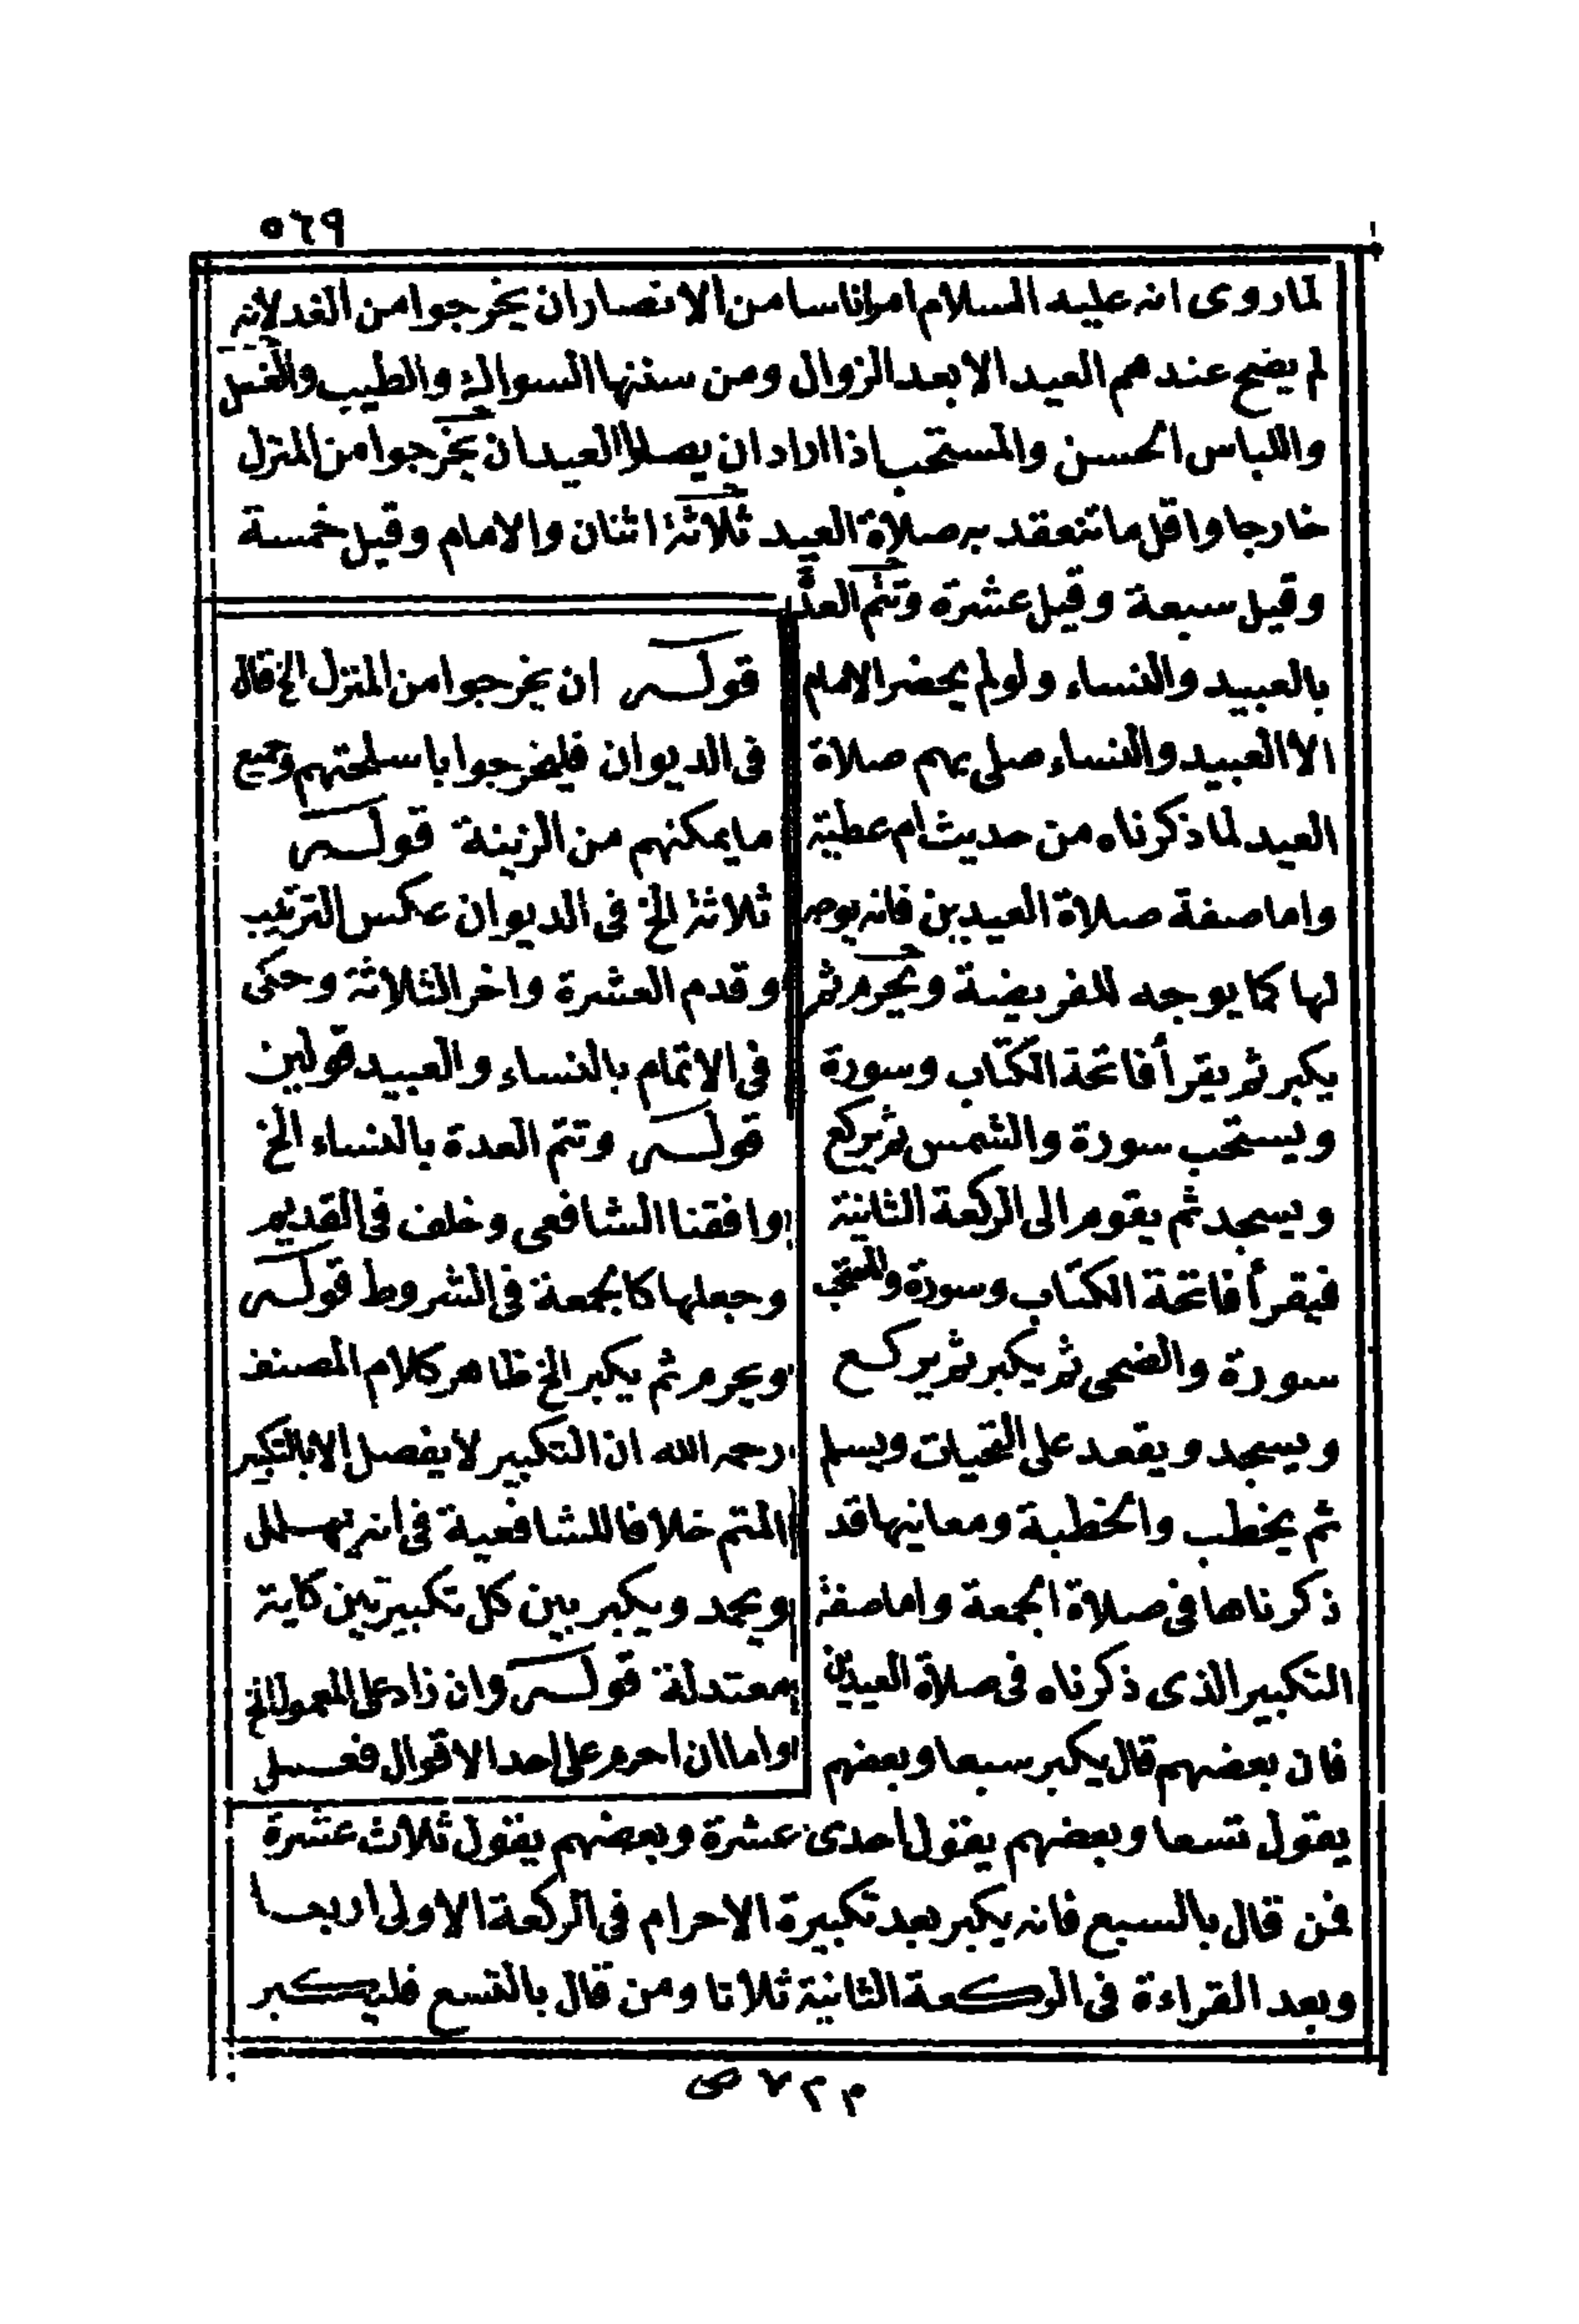 ٥٦٩
لما روى انه عليه السلام امر اناسا من الانصار ان يخرجوا من الغد لانه
لم يضح عندهم العيد الا بعد الزوال ومن سننها السواك والطيب والغسل
واللباس الحسن والمستحب اذا اراد ان يصلا العيد ان يخرجوا من المنزل
خارجا واقل ما تنعقد به صلاة العيد ثلاثة اثنان والامام وقيل خمسة
وقيل سبعة وقيل عشرة وتتم العدة
بالعبيد والنساء ولو لم يحضر الامام
الا العبيد والنساء صلى بهم صلاة
العيد لما ذكرناه من حديث ام عطية
واما صفة صلاة العيدين فانه يوجه
لها كما يوجه للفريضة ويحرم ثم
يكبر ثم يقرأ فاتحة الكتاب وسورة
ويستحب سورة والشمس ثم يركع
ويسجد ثم يقوم الى الركعة الثانية
فيقرأ فاتحة الكتاب وسورة والمستحب
سورة والضحى ثم يكبر ثم يركع
ويسجد ويقعد على التحيات ويسلم
ثم يخطب والخطبة ومعانيها قد
ذكرناها في صلاة الجمعة واما صفة
التكبير الذى ذكرناه فى صلاة العيدين
فان بعضهم قال يكبر سبعا وبعضهم
قوله ان يخرجوا من المنزل الخ قال
فى الديوان فليخرجوا باسلحتهم وجميع
ما يمكنهم من الزينة قوله
ثلاثة الخ فى الديوان عكس الترتيب
وقدم العشرة واخر الثلاثة وحكى
فى الاتمام بالنساء والعبيد قولين
قوله وتتم العدة بالنساء الخ
وافقنا الشافعى وخلف فى القديم
وجعلها كالجمعة فى الشروط قوله
ويحرم ثم يكبر الخ ظاهر كلام المصنف
رحمه الله ان التكبير لا يفصل الا بالتكبير
المتم خلافا للشافعية فى انه يهلل
ويحمد ويكبر بين كل تكبيرتين كاية
معتدلة قوله وان زاد على المعمول الخ
واما ان احرم على احد الاقوال فعلى
يقول تسعا وبعضهم يقول احدى عشرة وبعضهم يقول ثلاث عشرة
فمن قال بالسبع فانه يكبر بعد تكبيرة الاحرام فى الركعة الاولى اربعا
وبعد القراءة فى الركعة الثانية ثلاثا ومن قال بالتسع فليكبر